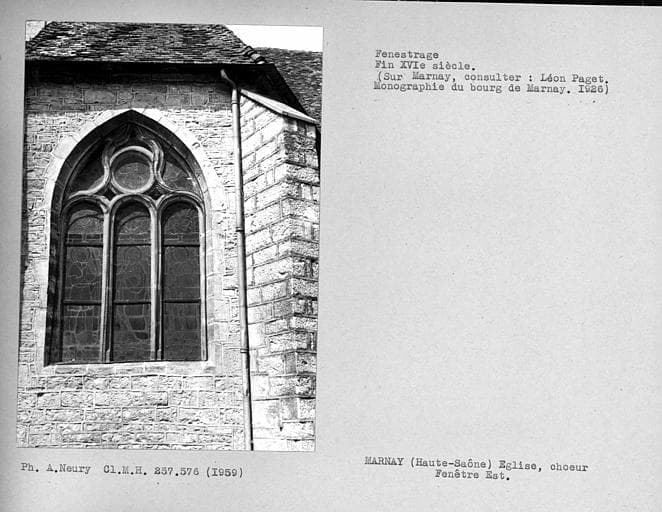 Fenestrage
Fin XVIe siècle.
(Sur Marnay, consulter : Léon Paget.
Monographie du bourg de Marnay. I926)
Ph. A.Neury Cl.M.H. 257.576 (I959)
MARNAY (Haute-Saône) Eglise, choeur
Fenêtre Est.